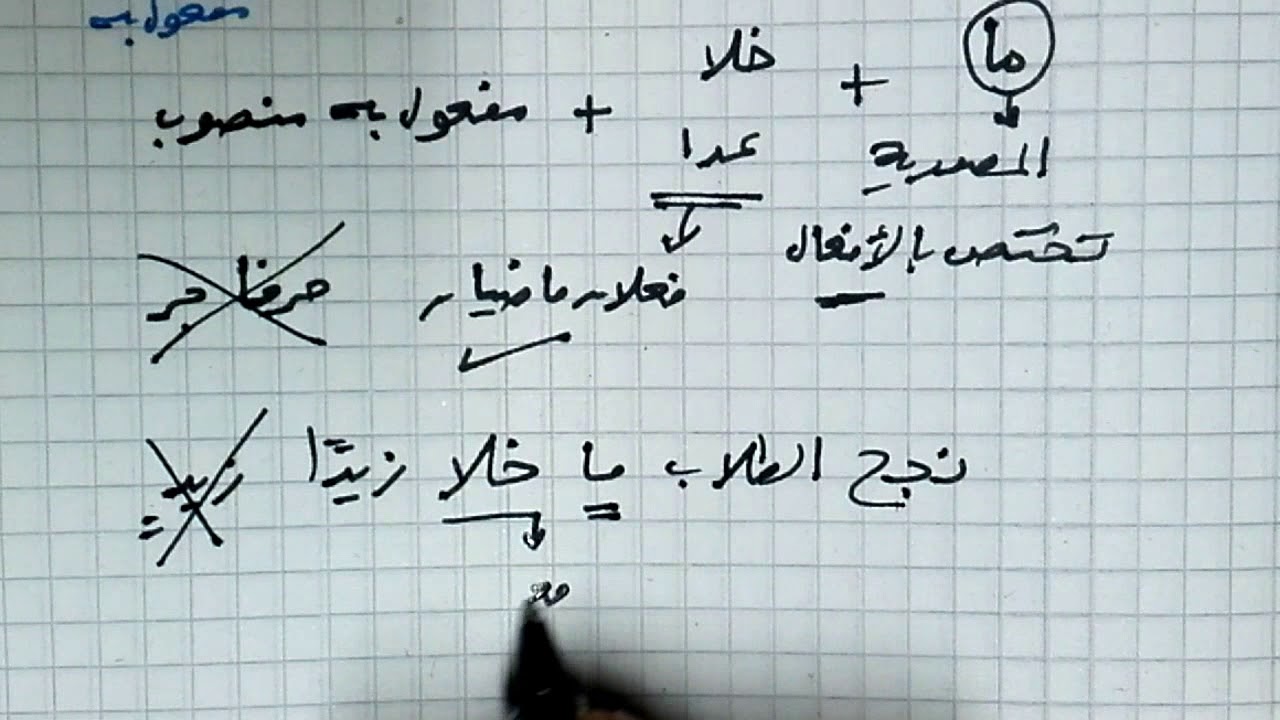 مفعول به
ما + خلا + مفعول به منصوب
المصدرية عدا
تختص بالأفعال
فعلان ماضيان حرفا جر
نجح الطلاب ما خلا زيدًا زيدٍ